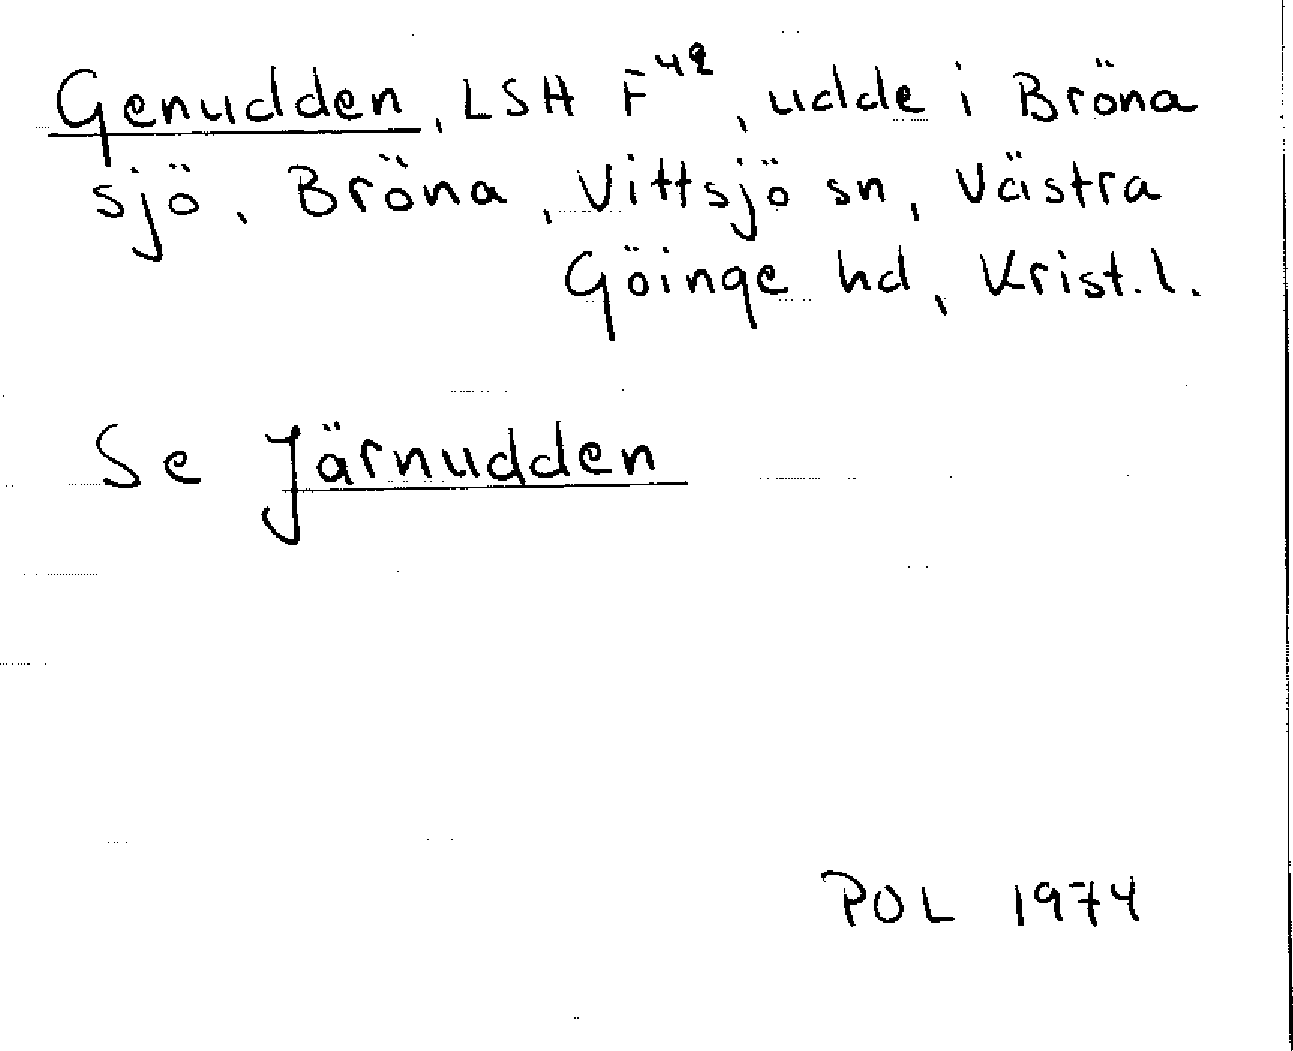 Genudden, LSH F⁴², udde i Bröna
sjö, Bröna, Vittsjö sn, Västra
Göinge hd, Krist.l.
Se Järnudden
POL 1974